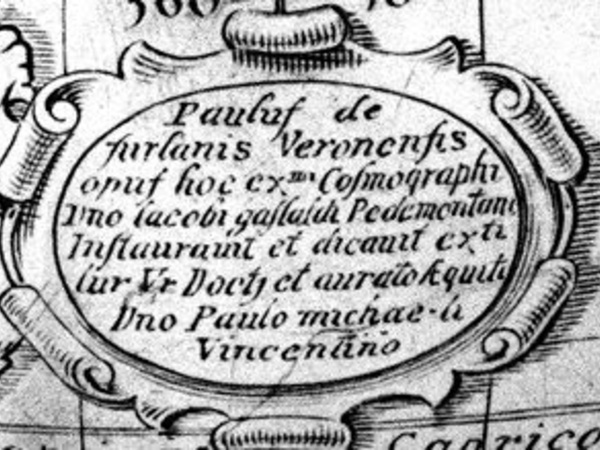 360
Paulus de
furlanis Veronensis
opus hoc ex.mi Cosmographi
Dno iacobi gastaldi Pedemontani
Instauravit et dicavit ex.ti
iur Vr Doctj et aurato Æquiti
Dno Paulo michae-li
Vincentino
Caprico